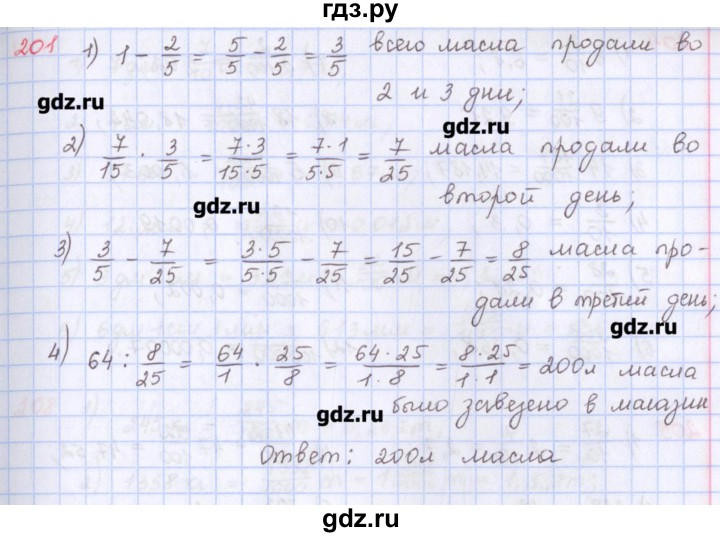 гдз.ру
201 1) 1 - 2/5 = 5/5 - 2/5 = 3/5 всего масла продали во
2 и 3 дни;
gdz.ru
gdz.ru
2) 7/15 · 3/5 = 7·3/15·5 = 7·1/5·5 = 7/25 масла продали во
второй день;
gdz.ru
3) 3/5 - 7/25 = 3·5/5·5 - 7/25 = 15/25 - 7/25 = 8/25 масла про-
дали в третий день;
gdz.ru
4) 64 : 8/25 = 64/1 · 25/8 = 64·25/1·8 = 8·25/1·1 = 200л масла
было завезено в магазин
gdz.ru
Ответ: 200л масла
gdz.ru